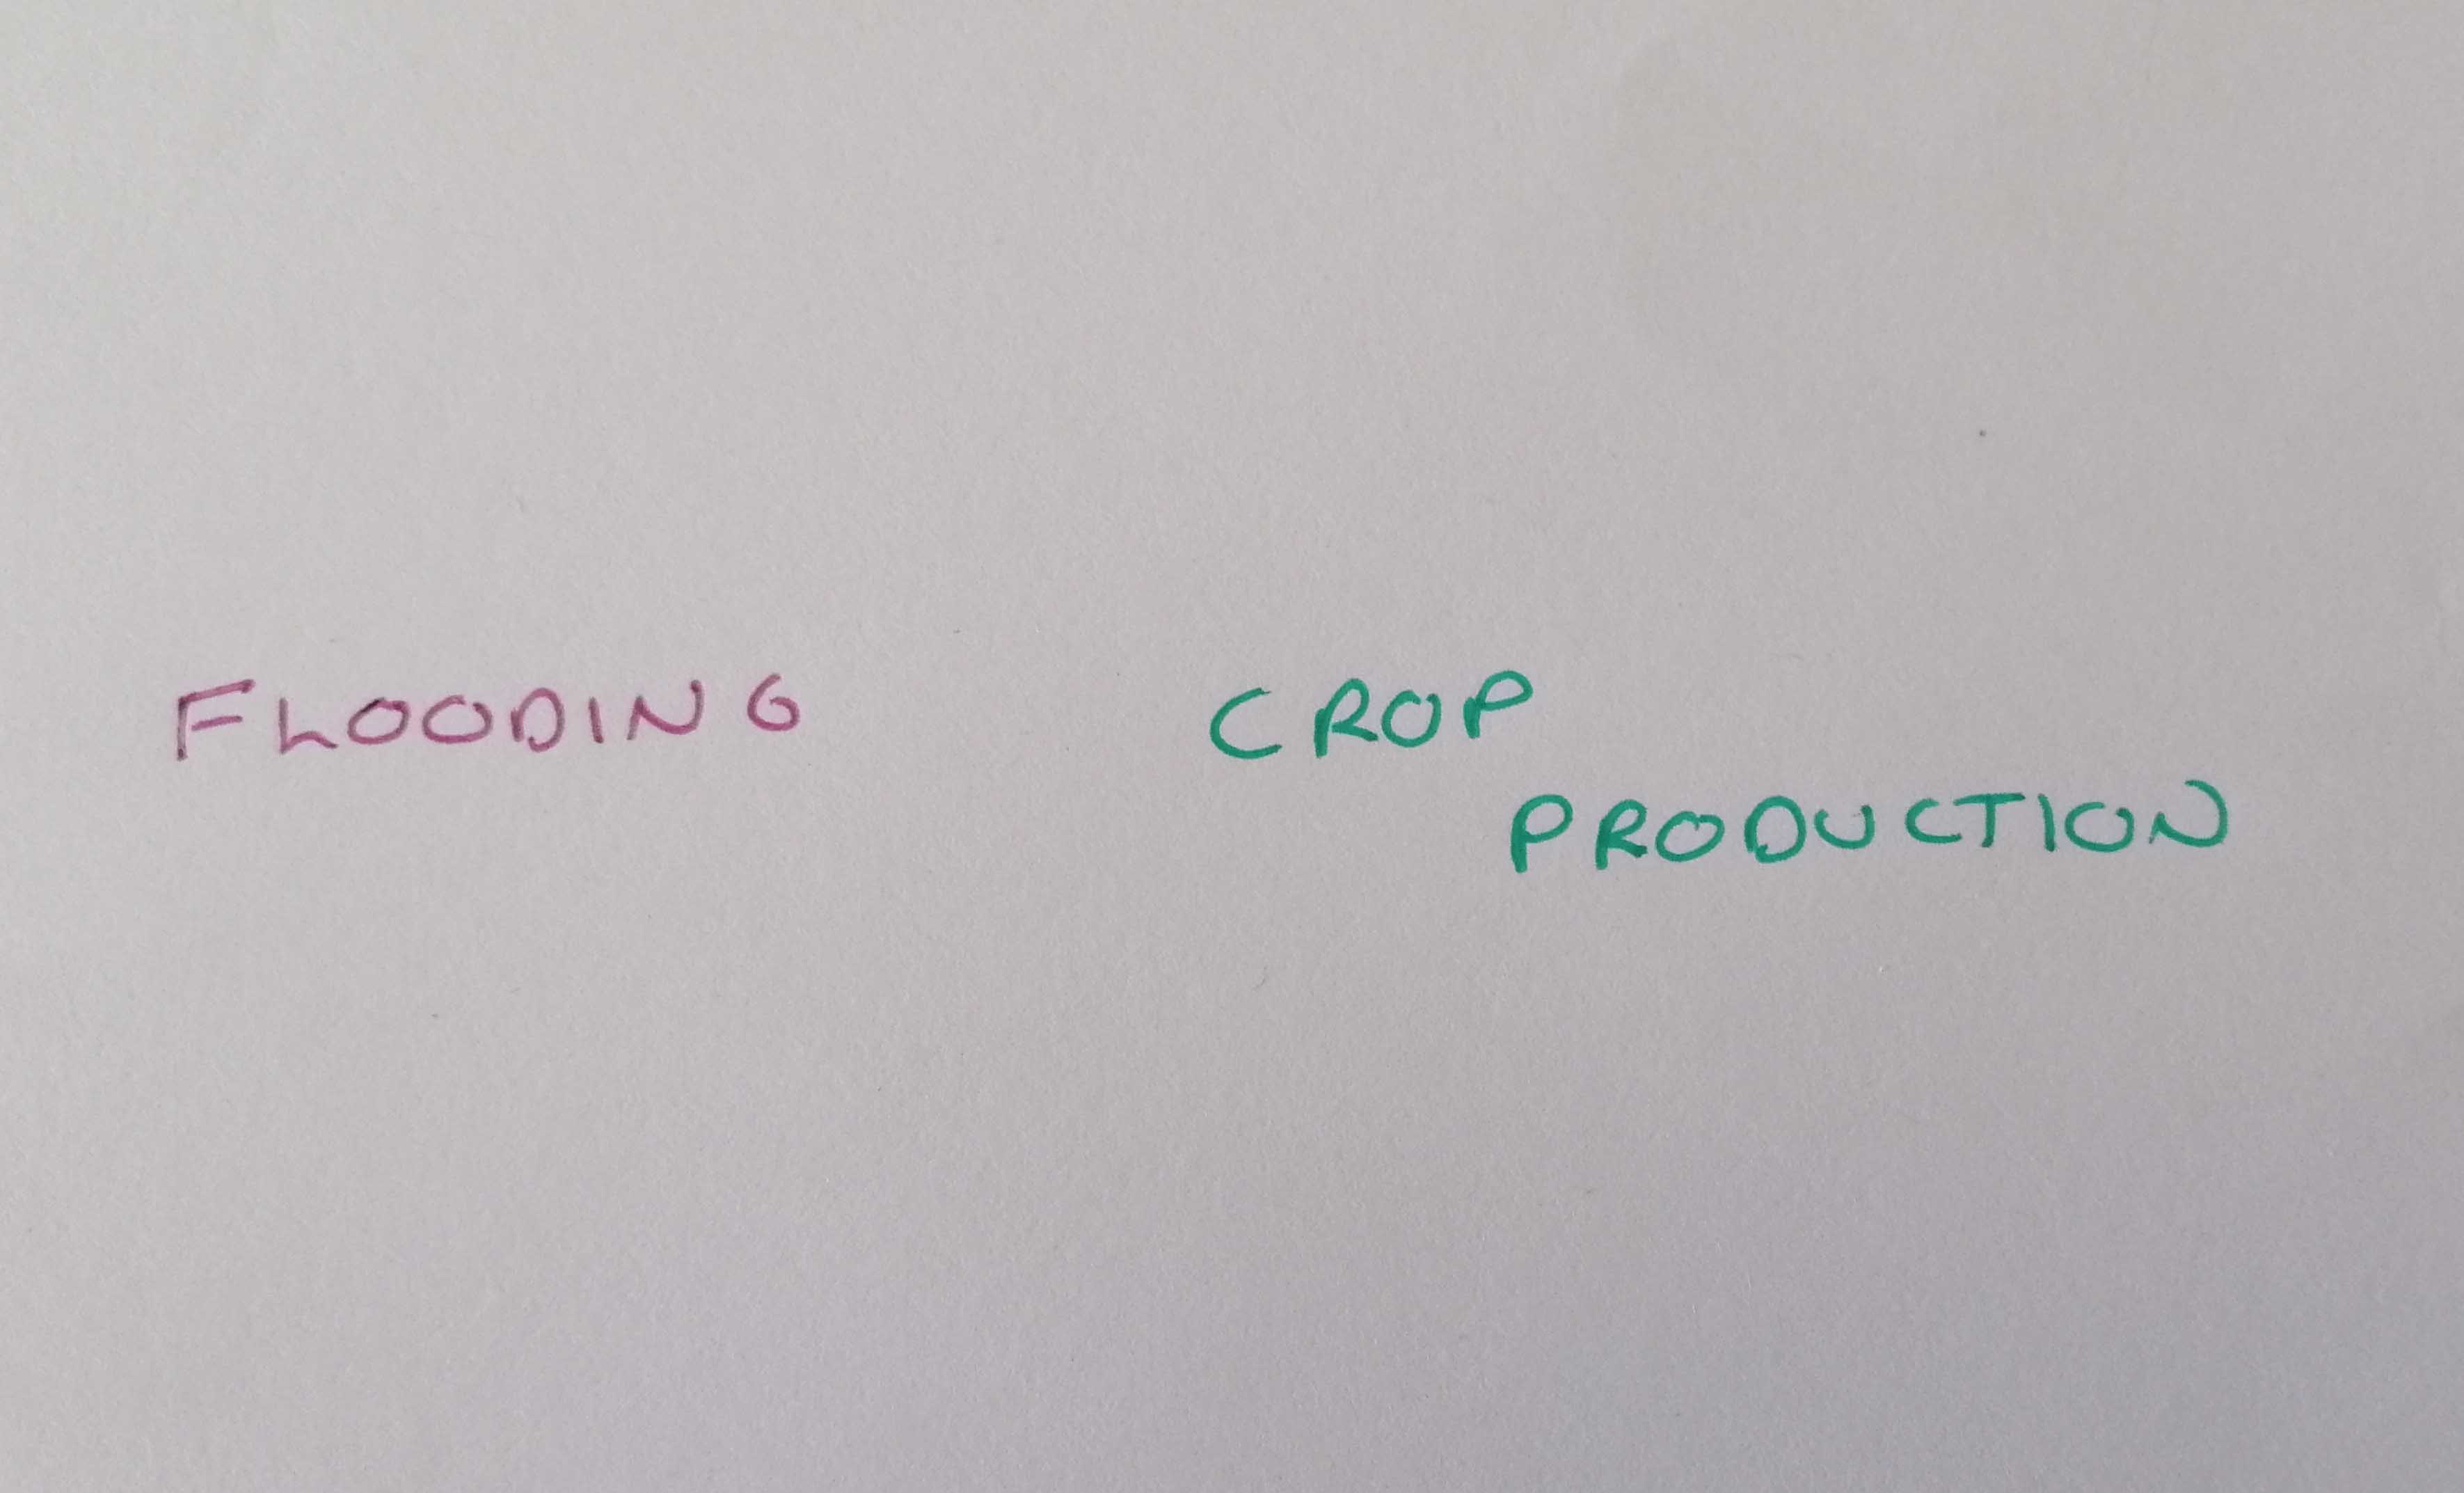 FLOODING CROP
PRODUCTION